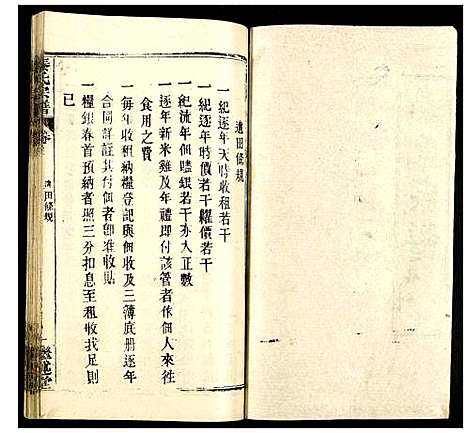 達田條規
一紀逐年天時收租若干
一紀逐年時價若干糶價若干
一紀流年佃嗑銀若干亦大正數
一逐年新米雞及年禮即付該管者作佃人來往
食用之費
一每年收租納糧登記與佃收及三簿底册逐年
合同詳註付佃者卸堆收貯
一糧銀春首預納者照三分扣息至租收找足則
已
秦氏宗譜
田條規